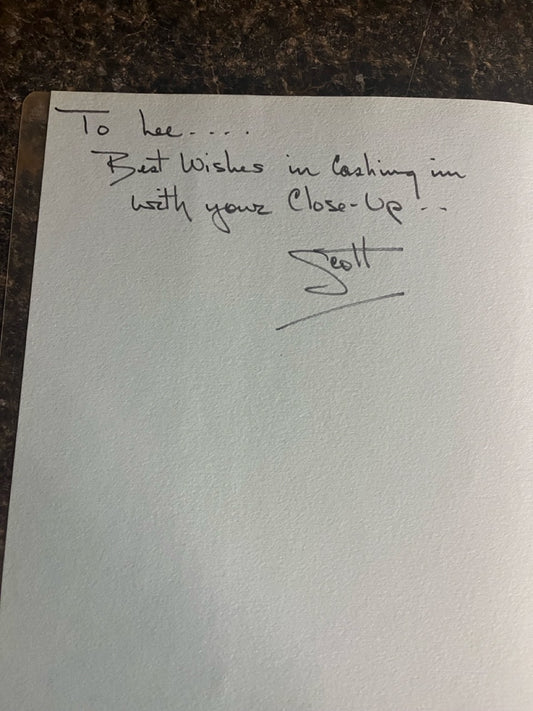 To Lee....
Best Wishes in Cashing in
with your Close-Up..
Scott